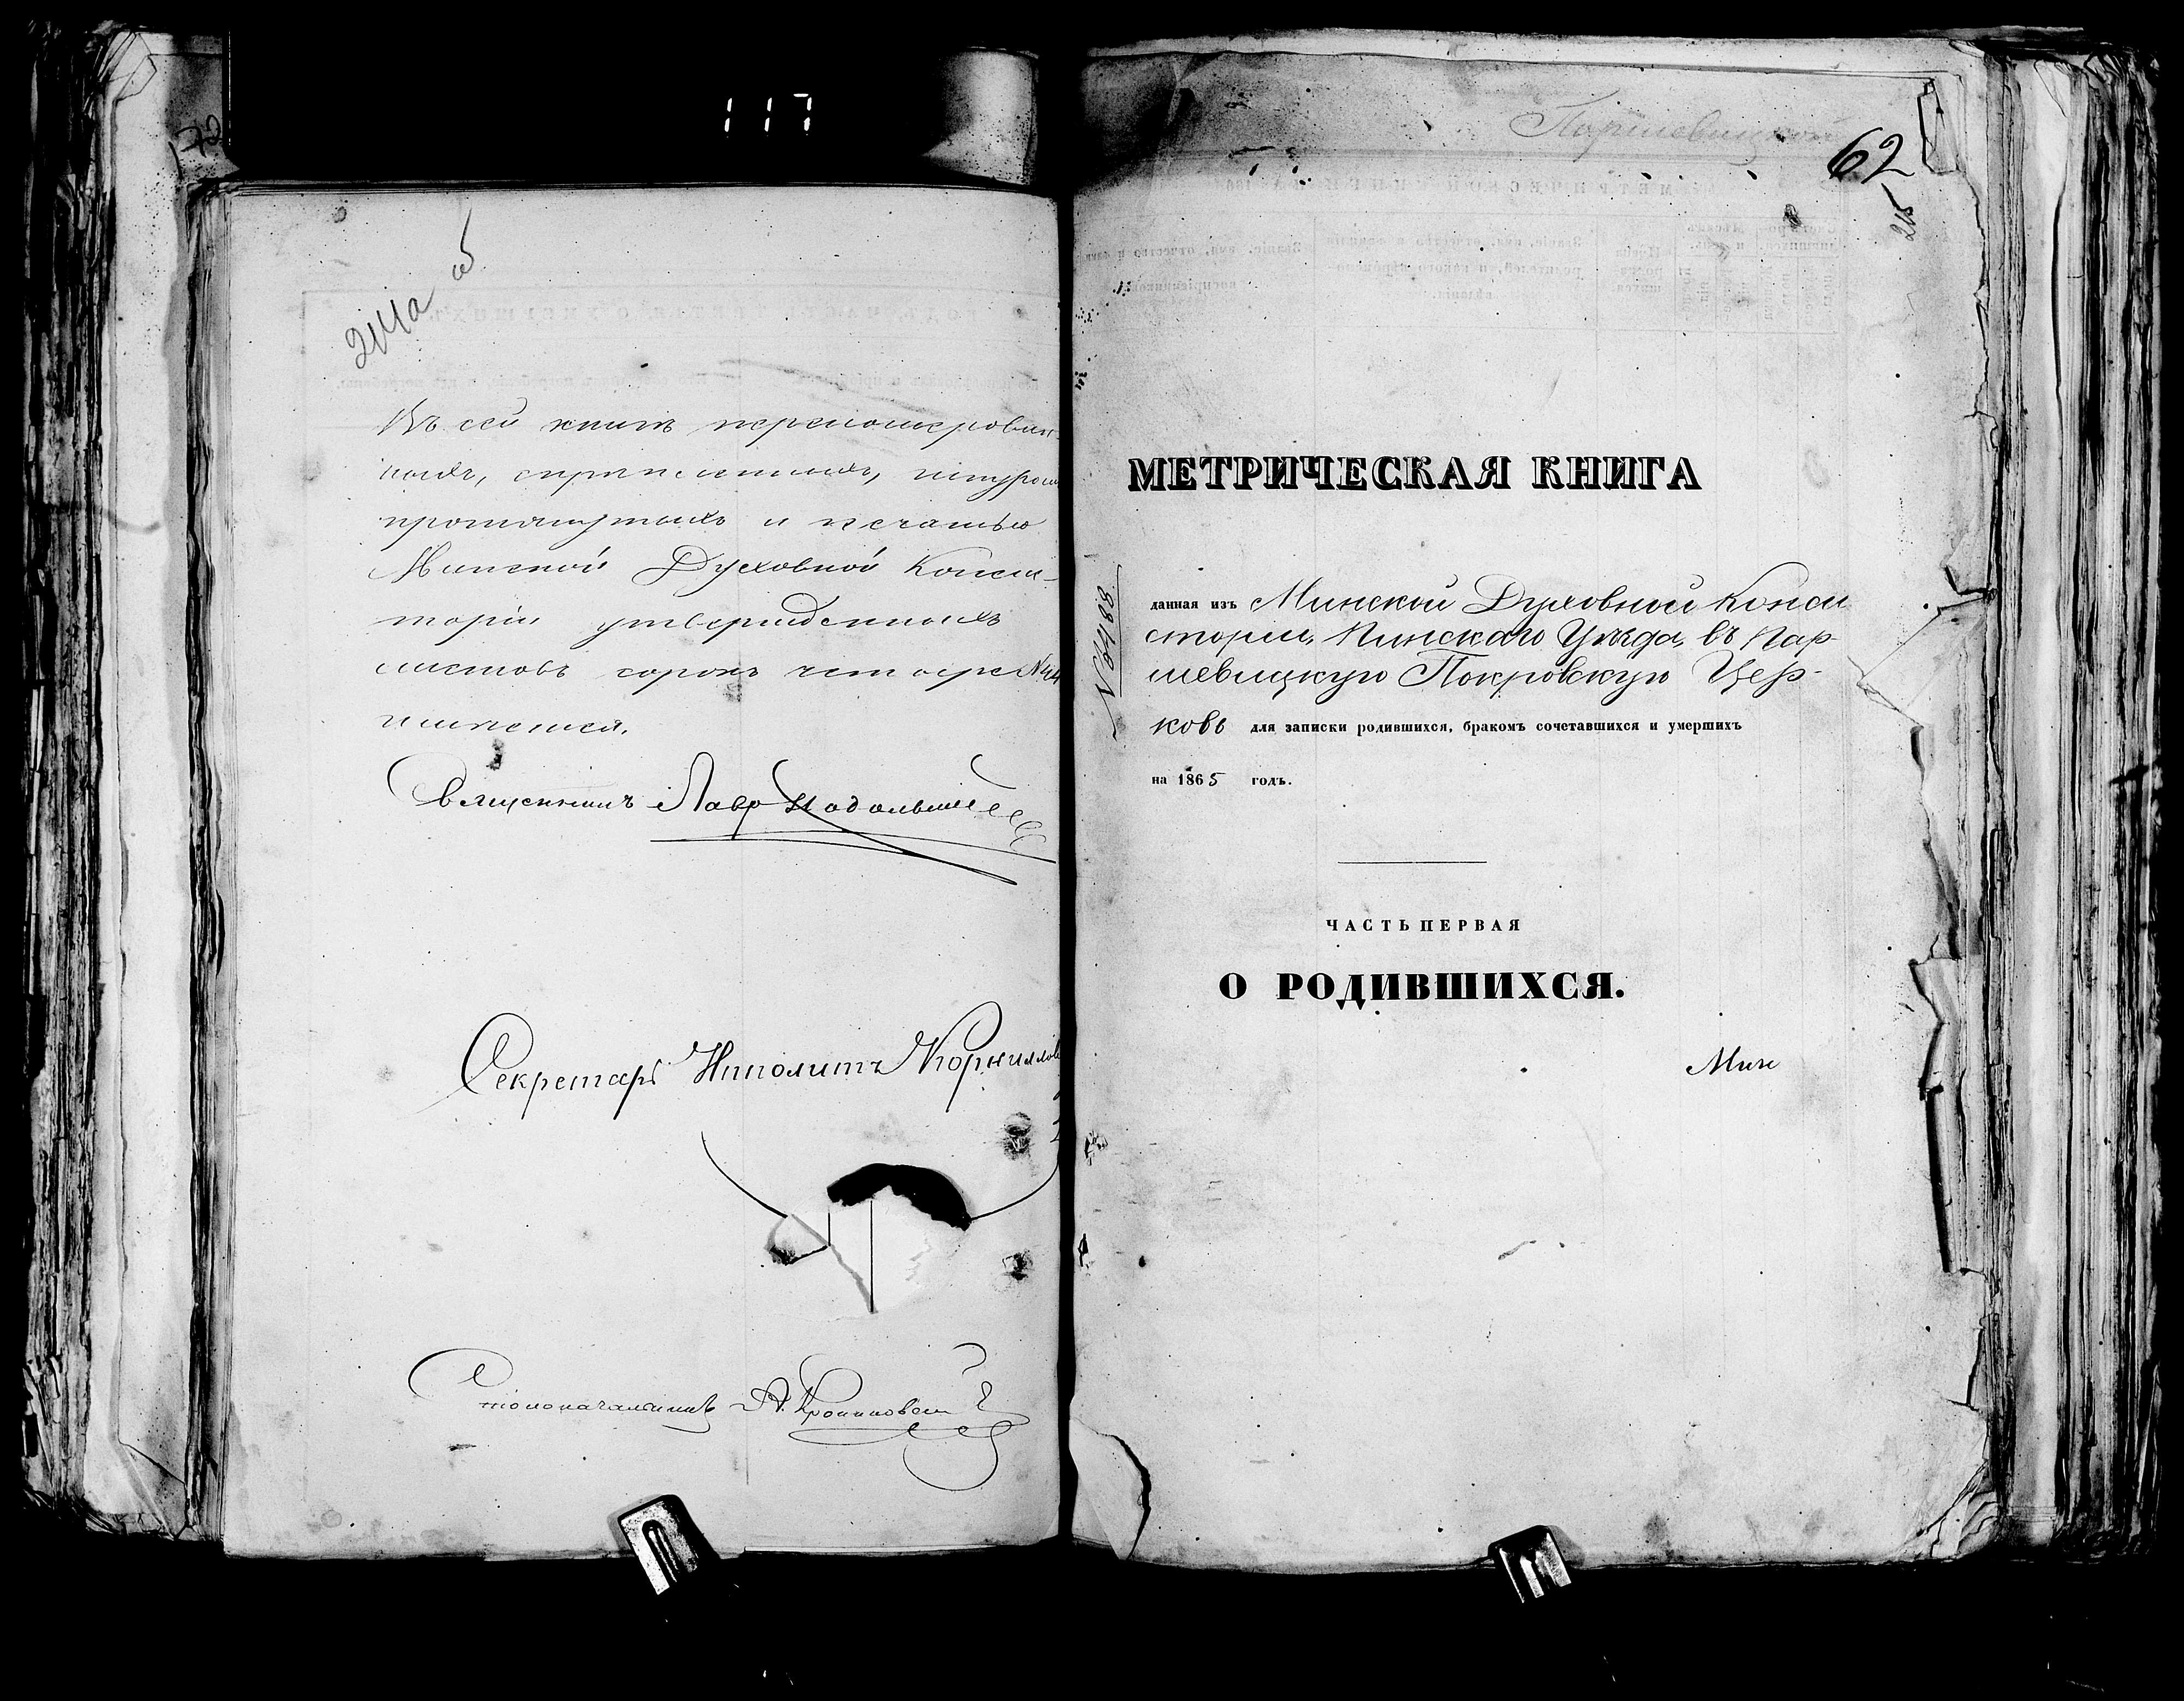 117
172
214а об
Въ сей книгѣ перенумерован-
ныхъ, скрѣпленныхъ, шнуромъ
протянутыхъ и печатью
Минской Духовной Конси-
сторіи утвержденныхъ
листовъ сорокъ четыре №44
имѣется.
Священникъ Лавр
Секретарь Иполитъ Корнилов
Столоначальникъ А.
Паршевицкой
62
215
МЕТРИЧЕСКАЯ КНИГА
данная изъ Минской Духовной Конси
сторіи, Пинскаго Уѣзда, въ Пар-
шевицкую Покровскую Цер-
ковь для записки родившихся, бракомъ сочетавшихся и умершихъ
на 1865 годъ.
№8488
ЧАСТЬ ПЕРВАЯ
О РОДИВШИХСЯ.
Мин